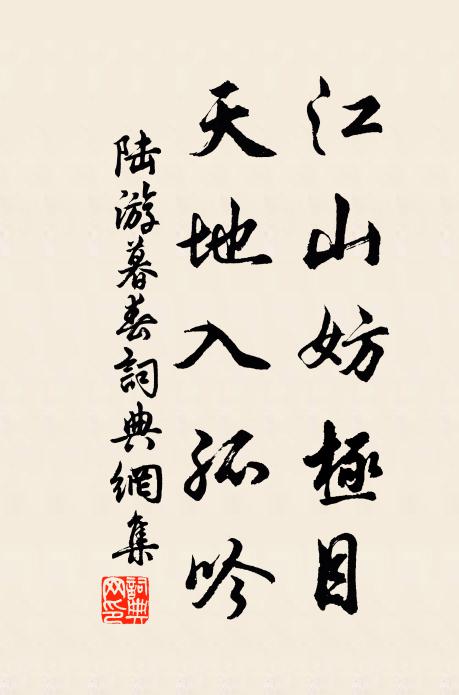 江山妨極目
天地入孤吟
陸游暮春詞典網集
詞典网印